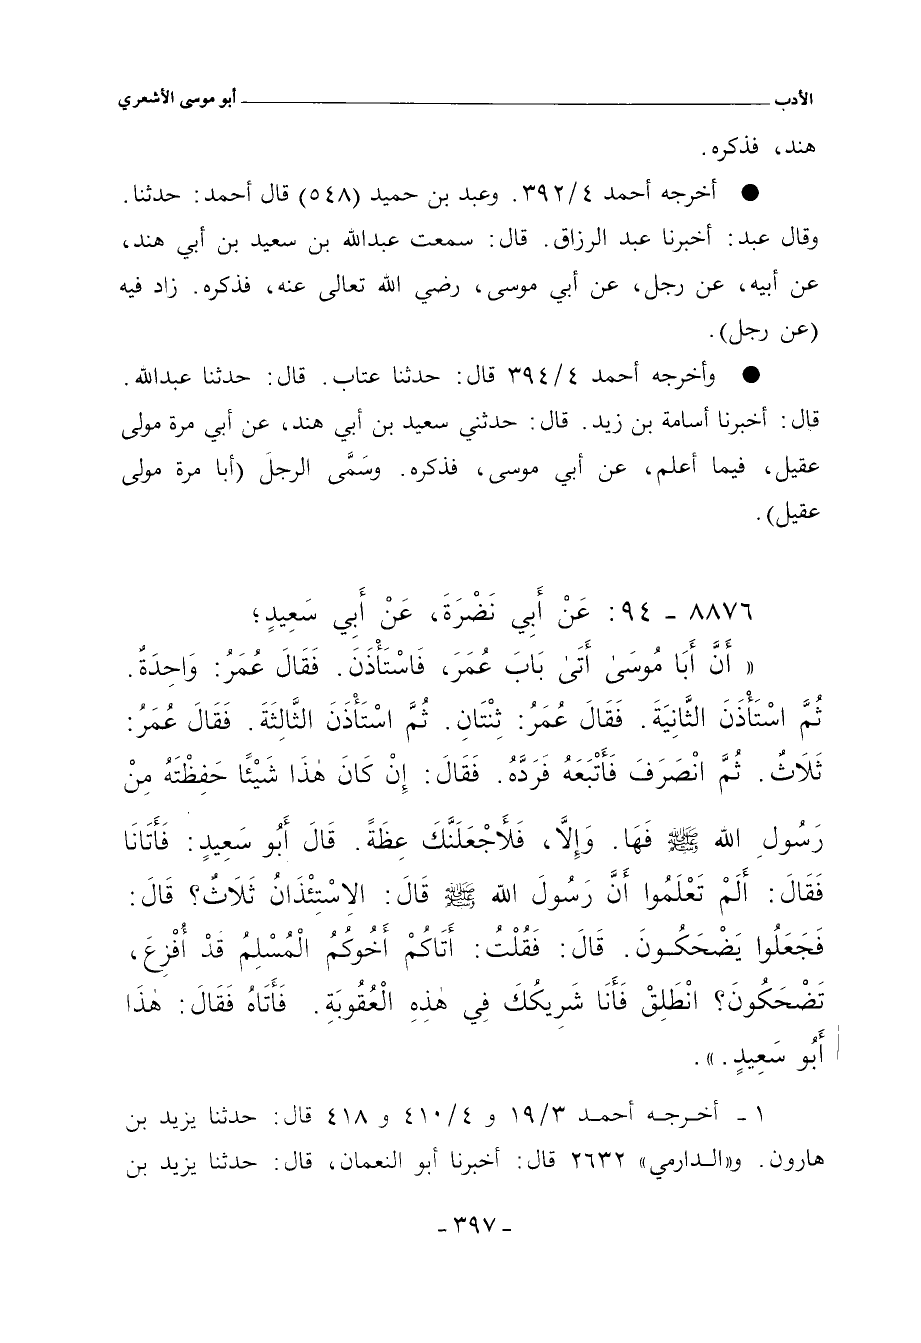 الأدب ــــــــــ أبو موسى الأشعري
هند، فذكره.
● أخرجه أحمد ٣٩٢/٤. وعبد بن حميد (٥٤٨) قال أحمد: حدثنا.
وقال عبد: أخبرنا عبد الرزاق. قال: سمعت عبدالله بن سعيد بن أبي هند،
عن أبيه، عن رجل، عن أبي موسى، رضي الله تعالى عنه، فذكره. زاد فيه
(عن رجل).
● وأخرجه أحمد ٣٩٤/٤ قال: حدثنا عتاب. قال: حدثنا عبدالله.
قال: أخبرنا أسامة بن زيد. قال: حدثني سعيد بن أبي هند، عن أبي مرة مولى
عقيل، فيما أعلم، عن أبي موسى، فذكره. وسَمَّى الرجلَ (أبا مرة مولى
عقيل).
٨٨٧٦ ـ ٩٤: عَنْ أَبِي نَضْرَةَ، عَنْ أَبِي سَعِيدٍ؛
« أَنَّ أَبَا مُوسَىٰ أَتَىٰ بَابَ عُمَرَ، فَاسْتَأْذَنَ. فَقَالَ عُمَرُ: وَاحِدَةٌ.
ثُمَّ اسْتَأْذَنَ الثَّانِيَةَ. فَقَالَ عُمَرُ: ثِنْتَانِ. ثُمَّ اسْتَأْذَنَ الثَّالِثَةَ. فَقَالَ عُمَرُ:
ثَلَاثٌ. ثُمَّ انْصَرَفَ فَأَتْبَعَهُ فَرَدَّهُ. فَقَالَ: إِنْ كَانَ هٰذَا شَيْئًا حَفِظْتَهُ مِنْ
رَسُولِ الله ﷺ فَهَا. وَإِلَّا، فَلَأَجْعَلَنَّكَ عِظَةً. قَالَ أَبُو سَعِيدٍ: فَأَتَانَا
فَقَالَ: أَلَمْ تَعْلَمُوا أَنَّ رَسُولَ الله ﷺ قَالَ: الاِسْتِئْذَانُ ثَلَاثٌ؟ قَالَ:
فَجَعَلُوا يَضْحَكُونَ. قَالَ: فَقُلْتُ: أَتَاكُمْ أَخُوكُمُ الْمُسْلِمُ قَدْ أُفْزِعَ،
تَضْحَكُونَ؟ انْطَلِقْ فَأَنَا شَرِيكُكَ فِي هٰذِهِ الْعُقُوبَةِ. فَأَتَاهُ فَقَالَ: هٰذَا
أَبُو سَعِيدٍ. ».
١ ـ أخرجه أحمد ١٩/٣ و ٤١٠/٤ و ٤١٨ قال: حدثنا يزيد بن
هارون. و«الدارمي» ٢٦٣٢ قال: أخبرنا أبو النعمان، قال: حدثنا يزيد بن
ـ ٣٩٧ ـ